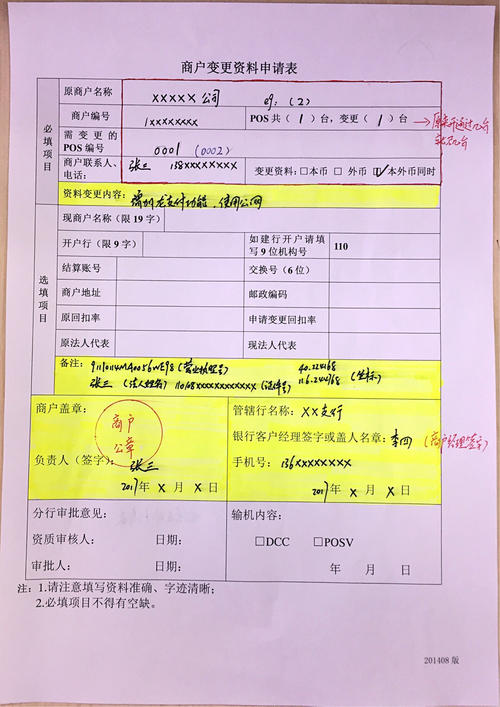 商户变更资料申请表
必填项目
原商户名称 XXXXX公司 eg:(2)
商户编号 1XXXXXXXX POS共(1)台,变更(1)台
需变更的POS编号 0001 (0002)
商户联系人、电话: 张三 138XXXXXXXX 变更资料:□本币 □外币 ☑本外币同时
资料变更内容: 增加龙支付功能,使用公网
选填项目
现商户名称(限19字)
开户行(限9字) 如建行开户请填写9位机构号 110
结算账号 交换号(6位)
商户地址 邮政编码
原回扣率 申请变更回扣率
原法人代表 现法人代表
备注: (营业执照号) 40.224168
张三(法人姓名) 110108XXXXXXXXXXXX(证件号) 116.244168 (坐标)
商户盖章: 商户公章
负责人(签字): 张三
2017年 X 月 X 日
管辖行名称: XX支行
银行客户经理签字或盖人名章: 李四 (商户经理签字)
手机号: 136XXXXXXXX
2017年 X 月 X 日
分行审批意见: 输机内容:
资质审核人: 日期: □DCC □POSV
审批人: 日期: 年 月 日
注:1.请注意填写资料准确、字迹清晰;
2.必填项目不得有空缺。
201408 版